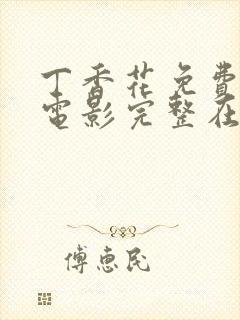 丁香花免費
電影完整在
傅惠民